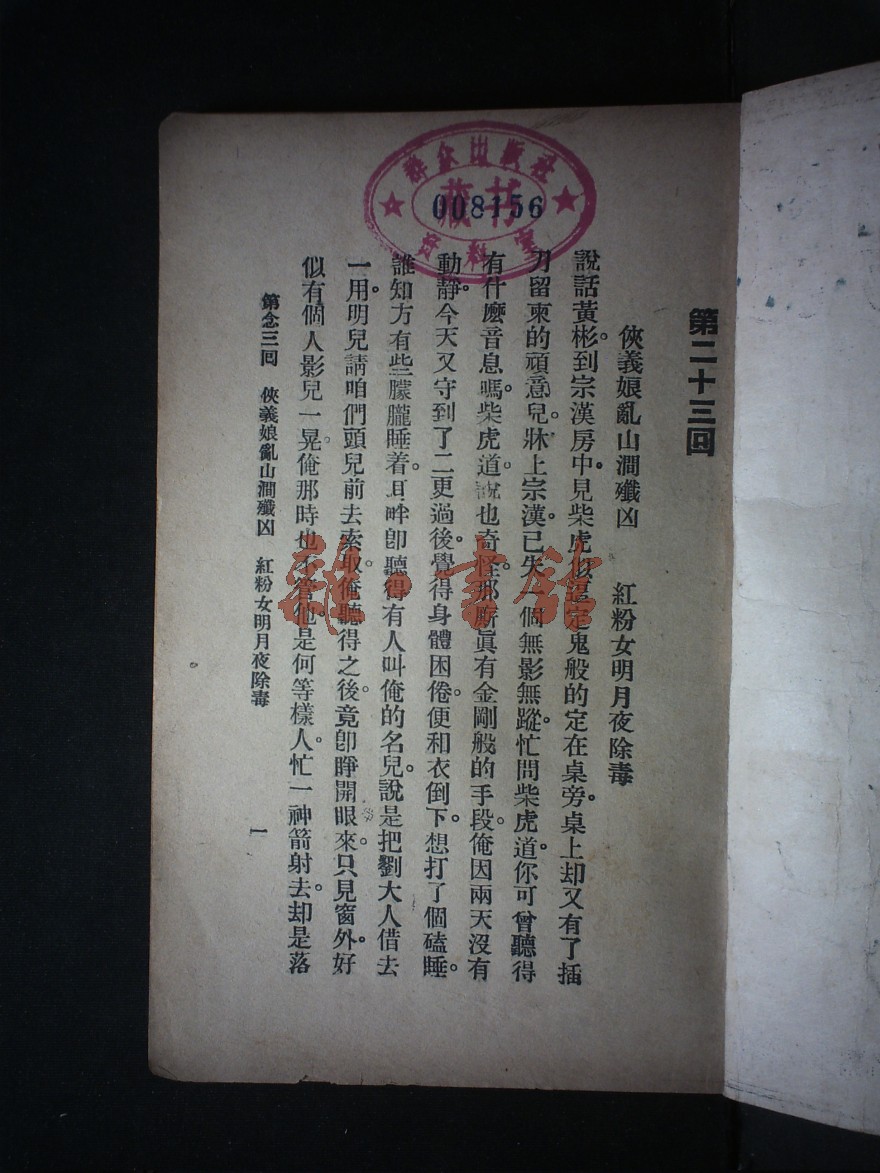 群众出版社
藏书
008156
资料室
第二十三回
俠義娘亂山澗殲凶 紅粉女明月夜除毒
說話黃彬。到宗漢房中。見柴虎似 定鬼般的定在桌旁。桌上却又有了插
刀留柬的頑意兒。牀上宗漢。已失 個無影無蹤。忙問柴虎道。你可曾聽得
有什麼音息嗎。柴虎道。說也奇怪。那厮眞有金剛般的手段。俺因兩天沒有
動靜。今天又守到了二更過後。覺得身體困倦。便和衣倒下。想打了個磕睡。
誰知方有些朦朧睡着。耳畔卽聽得有人叫俺的名兒。說是把劉大人借去
一用。明兒請咱們頭兒前去索取。俺聽得之後。竟卽睜開眼來。只見窗外。好
似有個人影兒一晃。俺那時也不管他是何等樣人。忙一神箭射去。却是落
第念三回 俠義娘亂山澗殲凶 紅粉女明月夜除毒
一
雜·書館